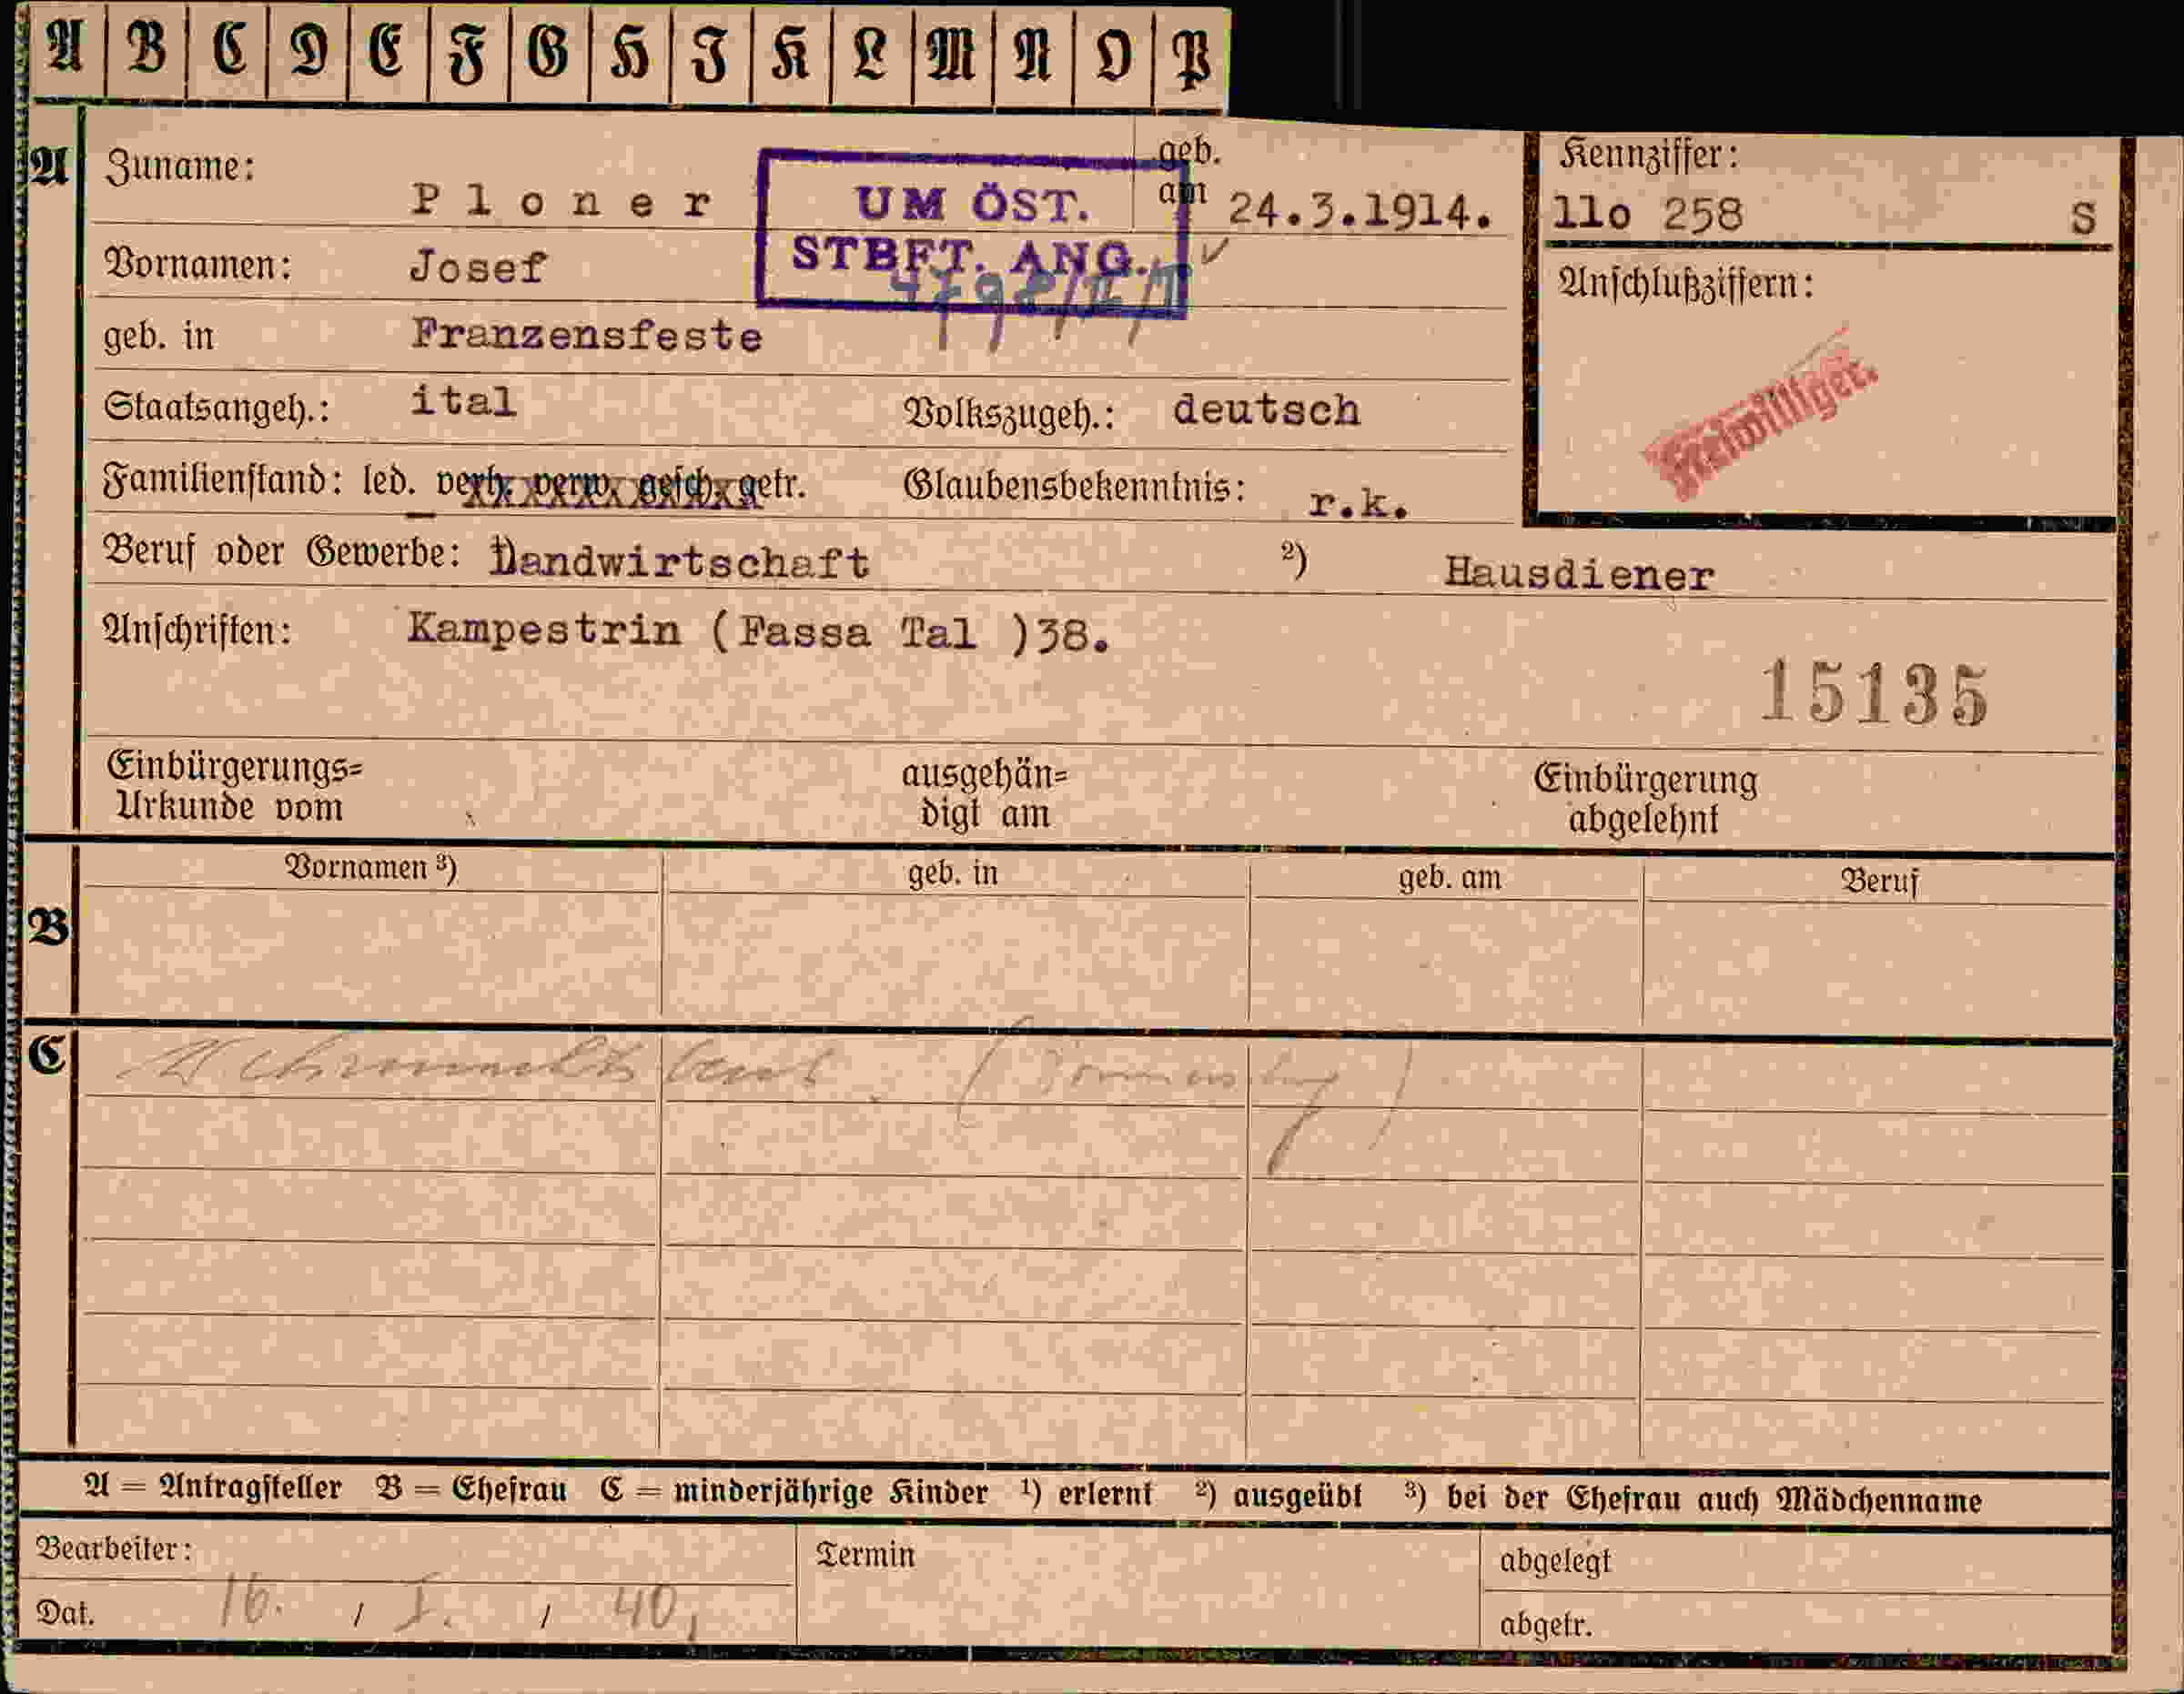 A B C D E F G H I K L M N O P
A
Zuname: Ploner
geb. am 24.3.1914.
UM ÖST.
STBFT. ANG.
Kennziffer:
11o 258 S
Vornamen: Josef
Anschlußziffern:
Freiwilliger.
geb. in Franzensfeste
Staatsangeh.: ital Volkszugeh.: deutsch
Familienstand: led. verh. verw. gesch. getr. Glaubensbekenntnis: r.k.
Beruf oder Gewerbe: Landwirtschaft ²) Hausdiener
Anschriften: Kampestrin (Fassa Tal )38.
15135
Einbürgerungs=
Urkunde vom
ausgehän=
digt am
Einbürgerung
abgelehnt
B
Vornamen ³) geb. in geb. am Beruf
C
A = Antragsteller B = Ehefrau C = minderjährige Kinder ¹) erlernt ²) ausgeübt ³) bei der Ehefrau auch Mädchenname
Bearbeiter:
Termin
abgelegt
Dat. 16. / I. / 40,
abgetr.